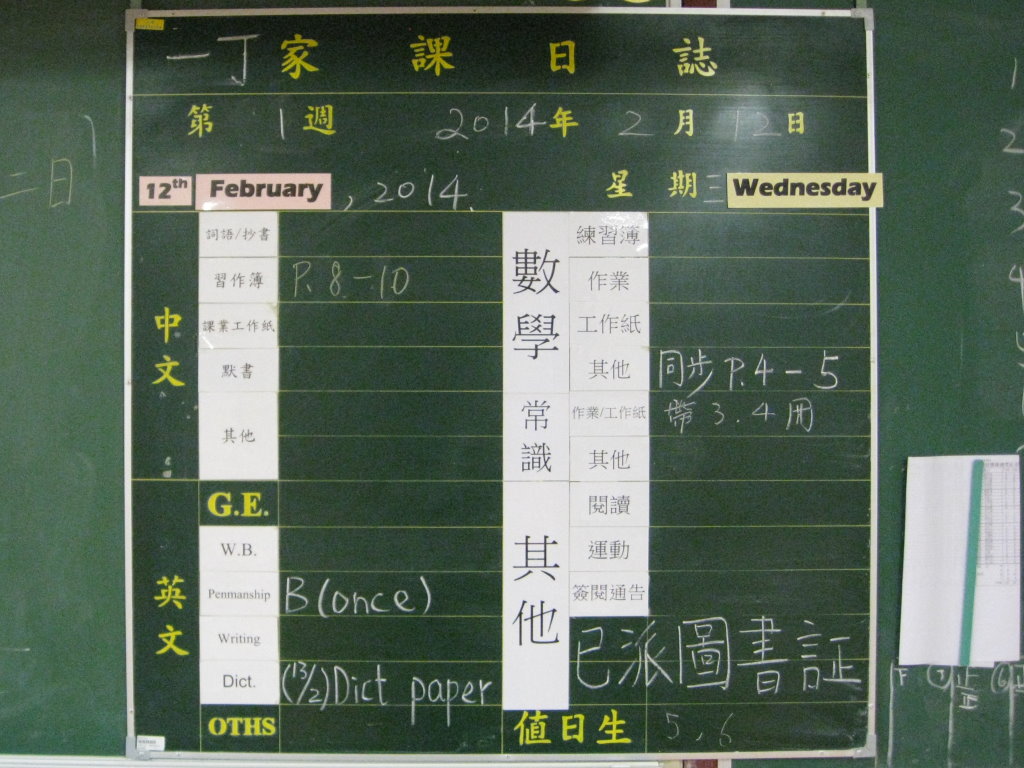 一丁家課日誌
第1週 2014年2月12日
12th February, 2014. 星期三 Wednesday
二日
中文
詞語/抄書
習作簿 P.8-10
課業工作紙
默書
其他
英文
G.E.
W.B.
Penmanship B(once)
Writing
Dict. (13/2)Dict paper
OTHS
數學
練習簿
作業
工作紙
其他 同步P.4-5
常識
作業/工作紙 帶3.4冊
其他
其他
閱讀
運動
簽閱通告
已派圖書証
值日生 5,6
1
2
3
4